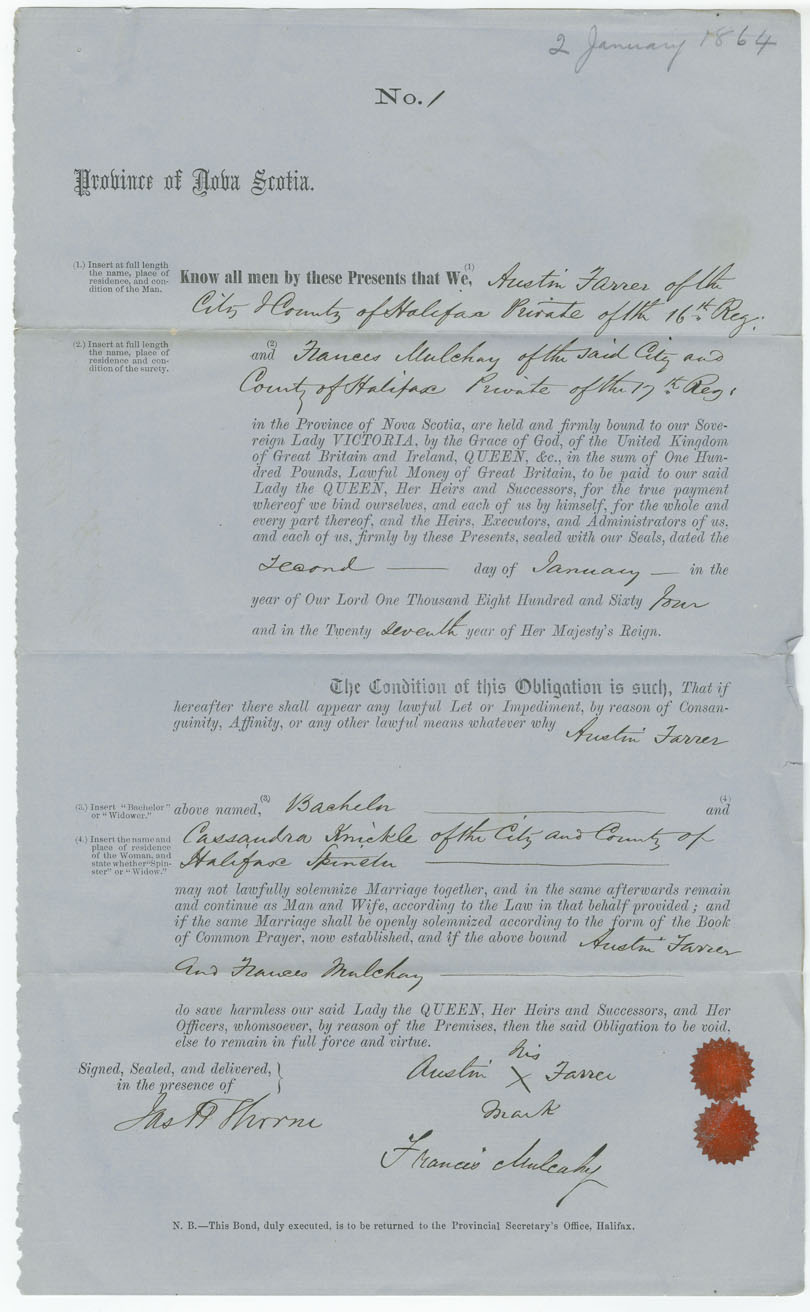 2 January 1864
No. 1
Province of Nova Scotia.
(1.) Insert at full length
the name, place of
residence, and con-
dition of the Man.
Know all men by these Presents that We, (1) Austin Farrer of the
City & County of Halifax Private of the 16th Reg:
(2.) Insert at full length
the name, place of
residence and con-
dition of the surety.
(2)
and Frances Mulchay of the said City and
County of Halifax Private of the 17th Reg:
in the Province of Nova Scotia, are held and firmly bound to our Sove-
reign Lady VICTORIA, by the Grace of God, of the United Kingdom
of Great Britain and Ireland, QUEEN, &c., in the sum of One Hun-
dred Pounds, Lawful Money of Great Britain, to be paid to our said
Lady the QUEEN, Her Heirs and Successors, for the true payment
whereof we bind ourselves, and each of us by himself, for the whole and
every part thereof, and the Heirs, Executors, and Administrators of us,
and each of us, firmly by these Presents, sealed with our Seals, dated the
second — day of January — in the
year of Our Lord One Thousand Eight Hundred and Sixty four
and in the Twenty seventh year of Her Majesty's Reign.
The Condition of this Obligation is such, That if
hereafter there shall appear any lawful Let or Impediment, by reason of Consan-
guinity, Affinity, or any other lawful means whatever why Austin Farrer
(3.) Insert "Bachelor"
or "Widower."
above named, (3) Bachelor — (4) and
(4.) Insert the name and
place of residence
of the Woman, and
state whether "Spin-
ster" or "Widow."
Cassandra Knickle of the City and County of
Halifax Spinster —
may not lawfully solemnize Marriage together, and in the same afterwards remain
and continue as Man and Wife, according to the Law in that behalf provided; and
if the same Marriage shall be openly solemnized according to the form of the Book
of Common Prayer, now established, and if the above bound Austin Farrer
and Frances Mulchay —
do save harmless our said Lady the QUEEN, Her Heirs and Successors, and Her
Officers, whomsoever, by reason of the Premises, then the said Obligation to be void,
else to remain in full force and virtue.
Signed, Sealed, and delivered,
in the presence of
his
Austin X Farrer
mark
Jas H Thorne
Francis Mulcahy
N. B.—This Bond, duly executed, is to be returned to the Provincial Secretary's Office, Halifax.